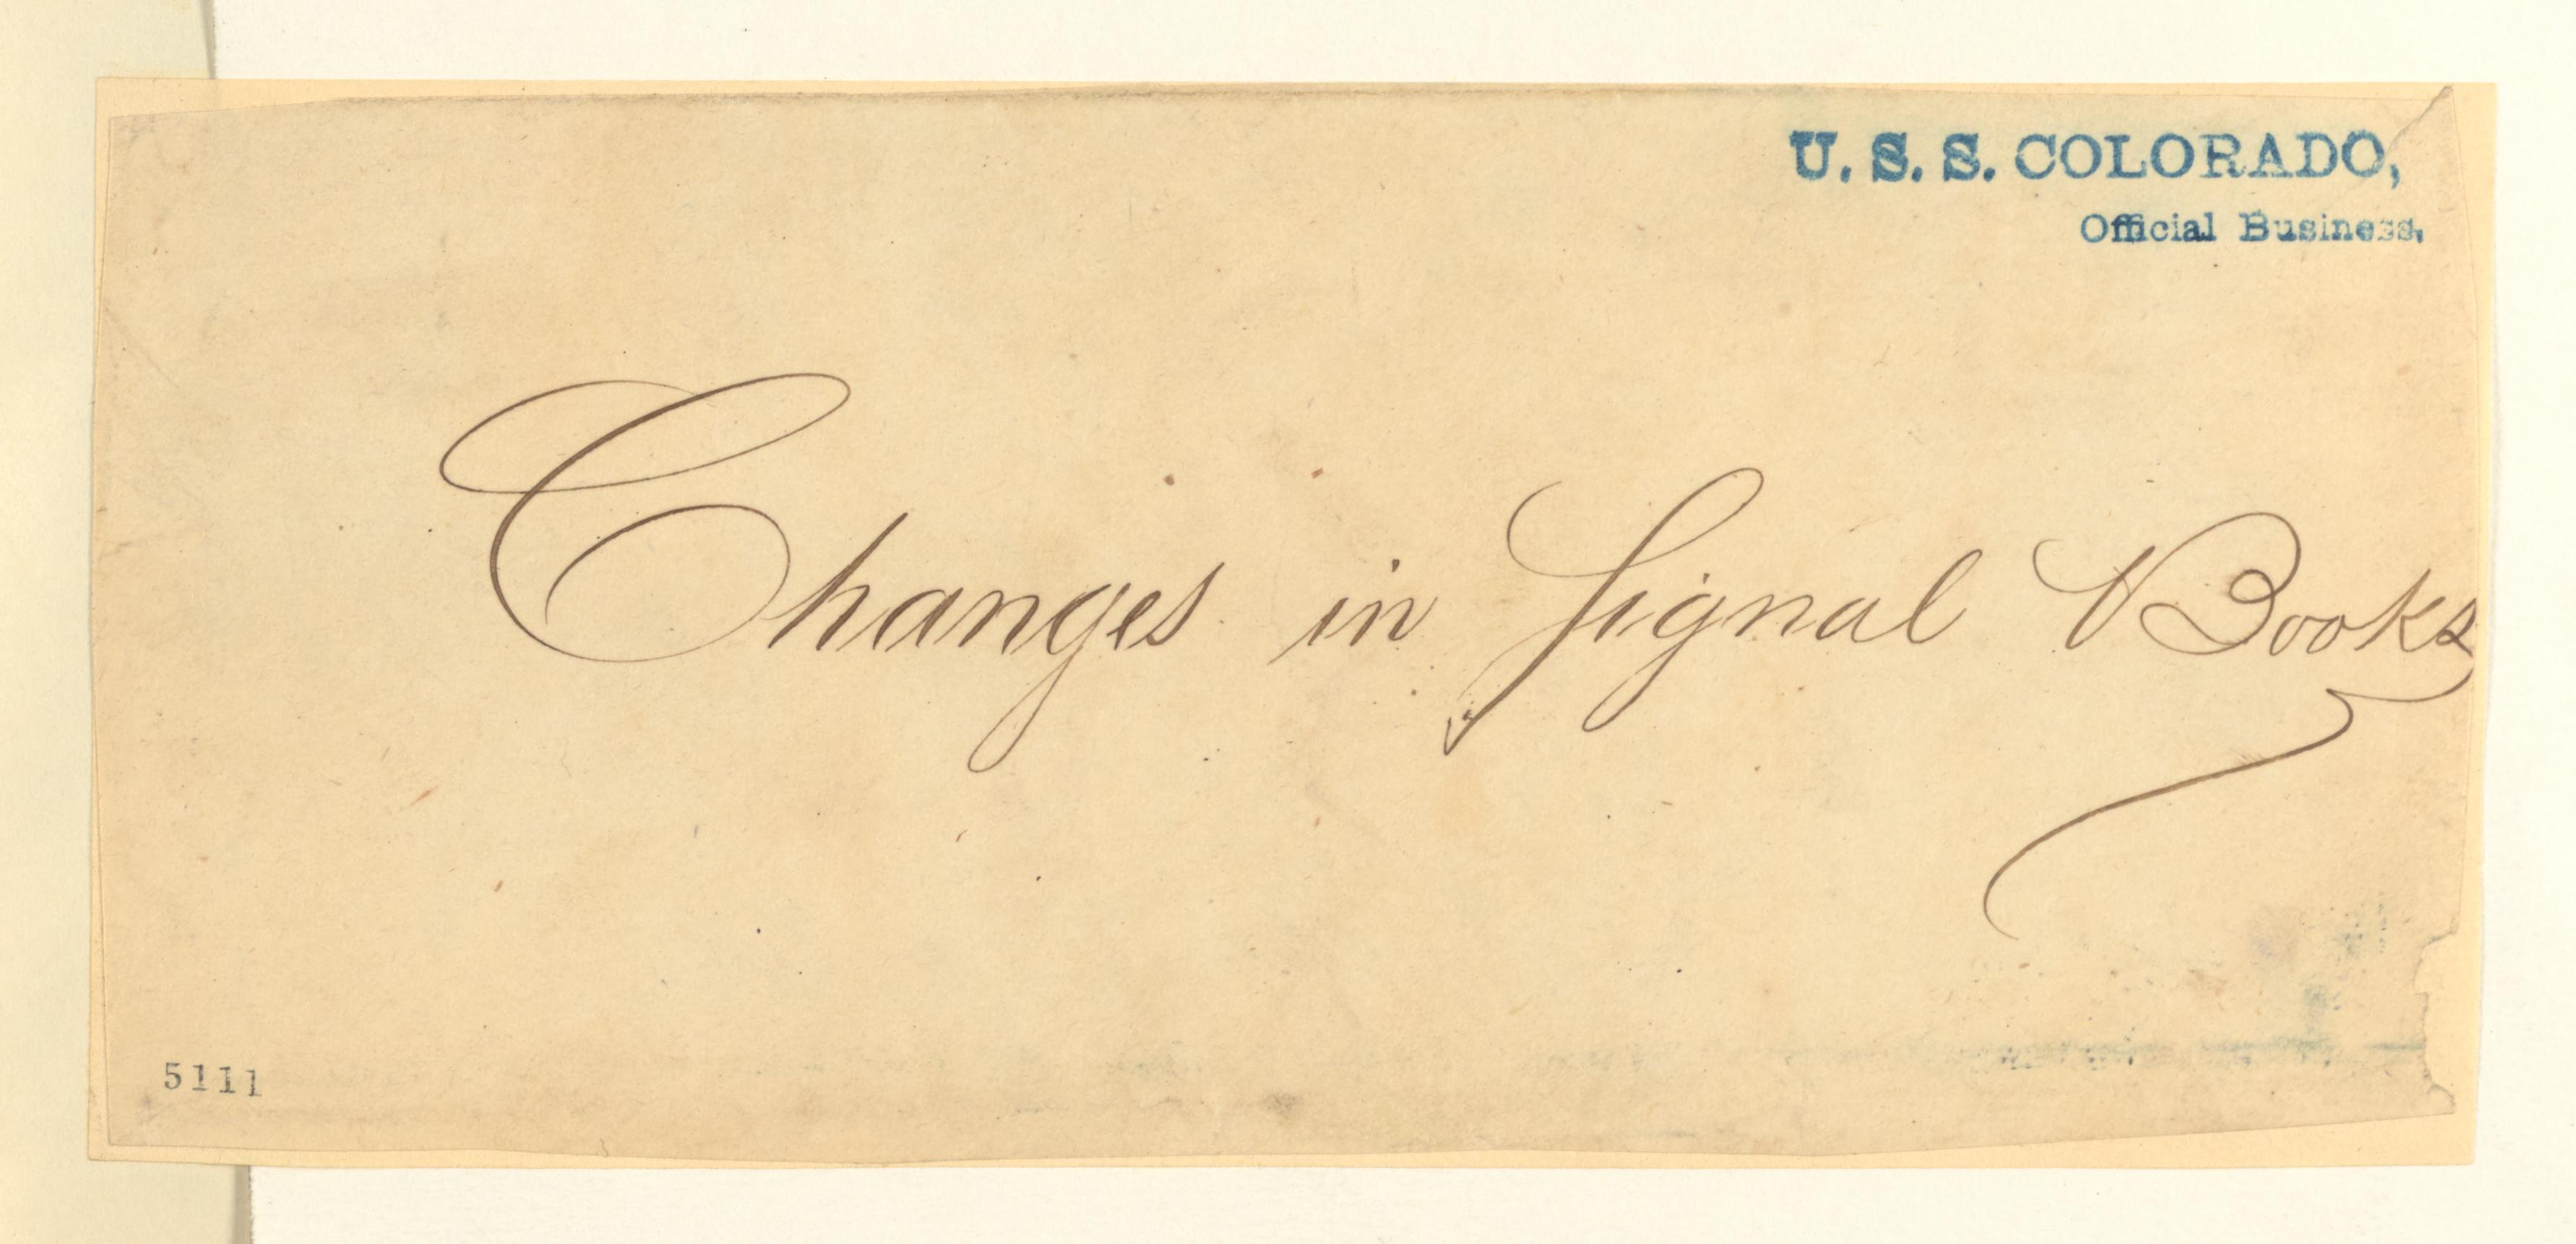 U. S. S. COLORADO,
Official Business,
Changes in Signal Books
5111